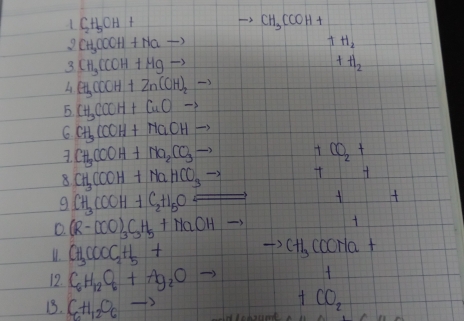 1. C₂H₅OH + → CH₃COOH +
2 CH₃COOH + Na → + H₂
3 CH₃COOH + Mg → + H₂
4 CH₃COOH + Zn(OH)₂ →
5. CH₃COOH + CuO →
6 CH₃COOH + NaOH →
7. CH₃COOH + Na₂CO₃ → + CO₂ +
8 CH₃COOH + NaHCO₃ → + +
9 CH₃COOH + C₂H₅O ⇌ + +
10. (R-COO)₃C₃H₅ + NaOH → +
11. CH₃COOC₂H₅ + → CH₃COONa +
12. C₆H₁₂O₆ + Ag₂O → +
13. C₆H₁₂O₆ → + CO₂